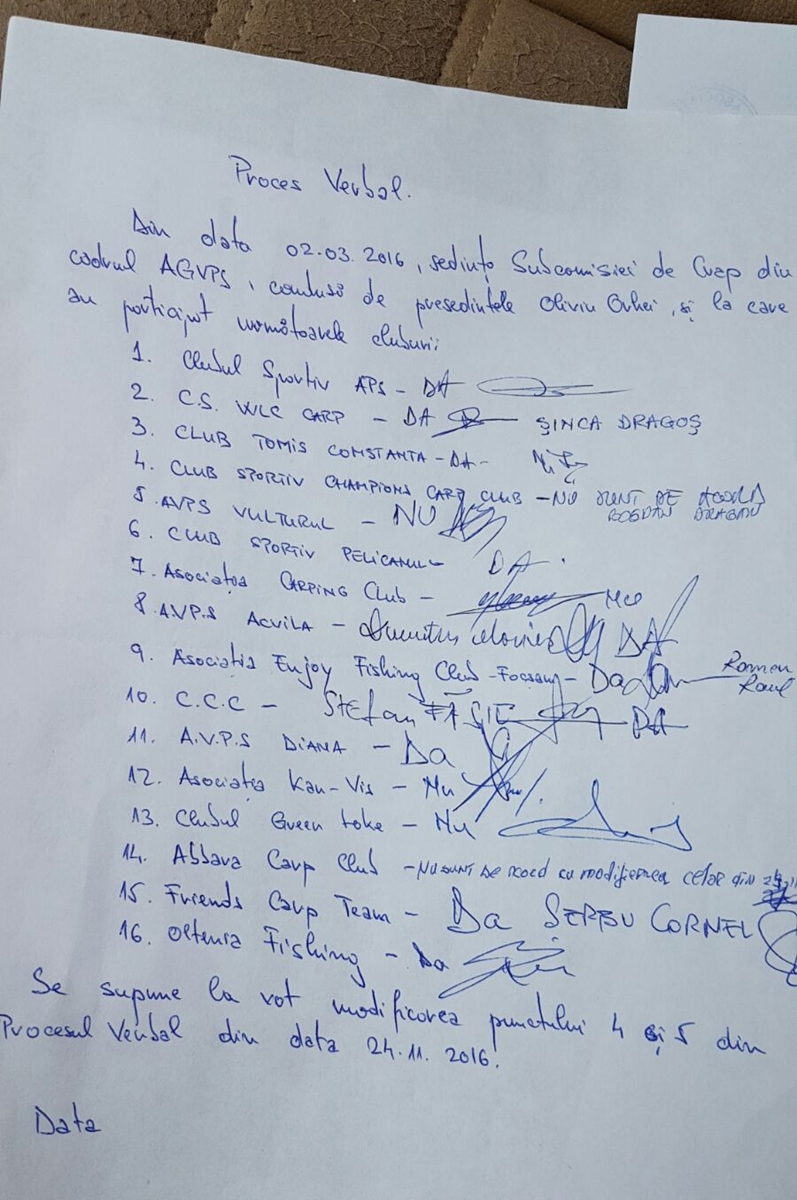 Proces Verbal.
Din data 02.03.2016, sedința Subcomisiei de Crap din
cadrul AGVPS, condusă de presedintele Oliviu Orhei, și la care
au participat următoarele cluburi:
1. Clubul Sportiv APS - DA
2. C.S. WLC CARP - DA ȘINCA DRAGOȘ
3. CLUB TOMIS CONSTANTA - DA -
4. CLUB SPORTIV CHAMPIONS CARP CLUB - NU SUNT DE ACORD
BOGDAN DRAGAN
5. AVPS VULTURUL - NU
6. CLUB SPORTIV PELICANUL - DA.
7. Asociatia CARPING Club -
8. A.V.P.S ACVILA - Dumitru DA
9. Asociatia Enjoy Fishing Club - Focsani - Da Romeu
Raul
10. C.C.C - Stefan FĂSIE DA
11. A.V.P.S DIANA - Da
12. Asociatia Kan-Vis - Nu
13. Clubul Green Lake - Nu
14. Abbara Carp Club - NU SUNT DE ACORD cu modificarea celor din
15. Friends Carp Team - Da SERBU CORNEL
16. Oltenia Fishing - Da
Se supune la vot modificarea punctului 4 și 5 din
Procesul Verbal din data 24.11.2016.
Data